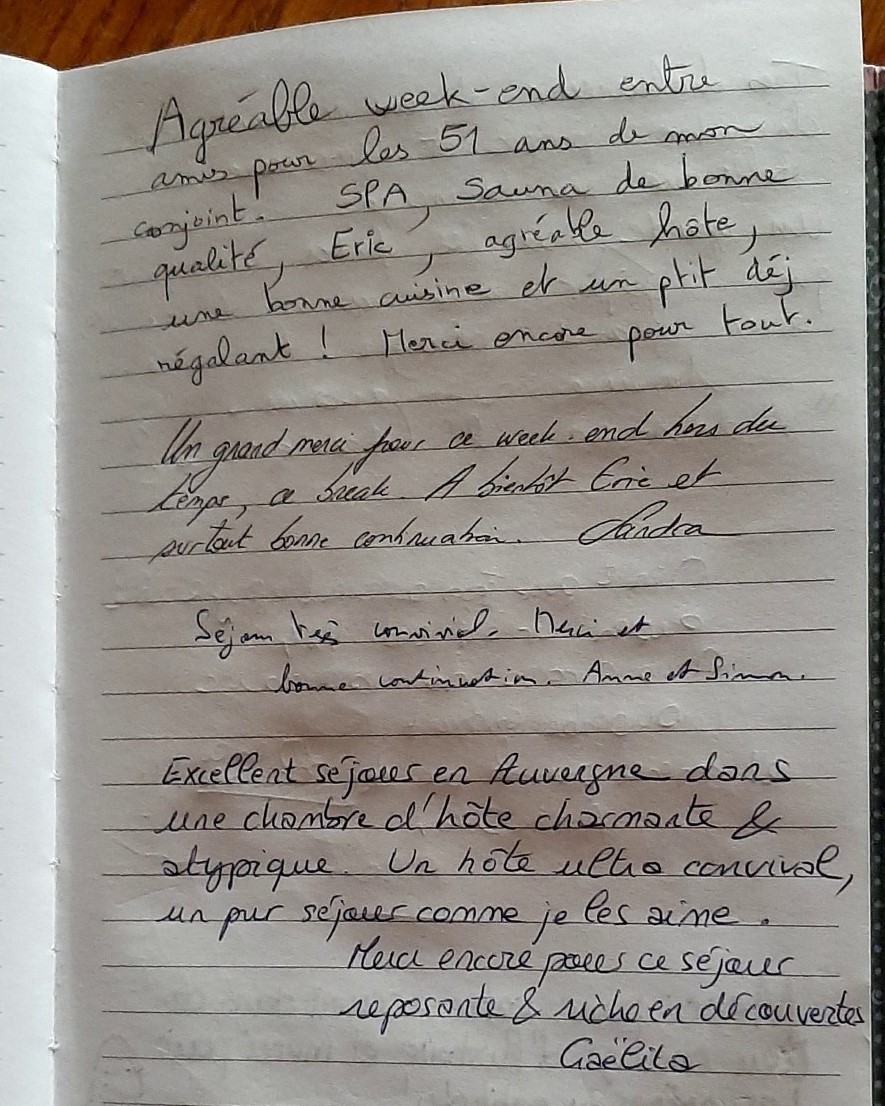 Agréable week-end entre
amis pour les 51 ans de mon
conjoint. SPA, Sauna de bonne
qualité, Eric, agréable hôte,
une bonne cuisine et un ptit déj
régalant ! Merci encore pour tout.
Un grand merci pour ce week-end hors du
temps, ce break. A bientôt Eric et
surtout bonne continuation. Sandra
Séjour très convivial. Merci et
bonne continuation. Anne et Simon.
Excellent séjour en Auvergne dans
une chambre d'hôte charmante &
atypique. Un hôte ultra convival,
un pur séjour comme je les aime.
Merci encore pour ce séjour
reposante & riche en découvertes
Gaëlita